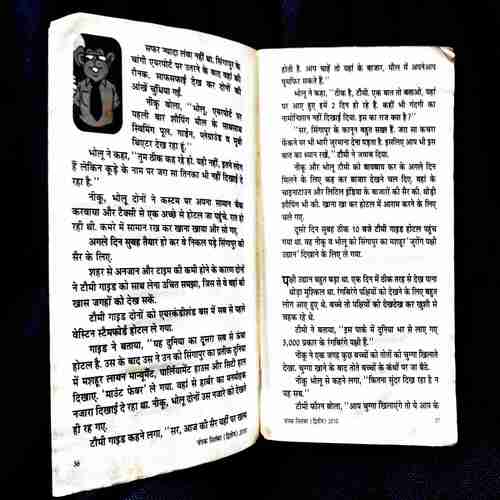 सफर ज्यादा लंबा नहीं था. सिंगापुर के
चांगी एयरपोर्ट पर उतरने के बाद वहां की
रौनक, साफसफाई देख कर दोनों की
आंखें चुंधिया गईं.
नीकू बोला, ‘‘भोलू, एयरपोर्ट पर
पहली बार शौपिंग मौल के साथसाथ
स्विमिंग पूल, गार्डन, प्लेग्राउंड व मूवी
थिएटर देख रहा हूं.’’
भोलू ने कहा, ‘‘तुम ठीक कह रहे हो. यही नहीं, इतने लोग
हैं लेकिन कूड़े के नाम पर जरा सा तिनका भी नहीं दिखाई दे
रहा है.’’
नीकू, भोलू दोनों ने कस्टम पर अपना सामान चैक
करवाया और टैक्सी से एक अच्छे से होटल जा पहुंचे. रात हो
रही थी. कमरे में सामान रख कर खाना खाया और सो गए.
अगले दिन सुबह तैयार हो कर वे निकल पड़े सिंगापुर की
सैर के लिए.
शहर से अनजान और टाइम की कमी होने के कारण दोनों
ने टौमी गाइड को साथ लेना उचित समझा, जिस से वे वहां की
खास जगहों को देख सकें.
टौमी गाइड दोनों को एयरकंडीशंड बस में सब से पहले
वेस्टिन स्टैमफोर्ड होटल ले गया.
गाइड ने बताया, ‘‘यह दुनिया का दूसरा सब से ऊंचा
होटल है. उस के बाद उस ने उन को सिंगापुर का प्रतीक दुनिया
में मशहूर लायन मान्यूमेंट, पार्लियामेंट हाउस और सिटी हाल
दिखाए. ‘माउंट फेबर’ ले गया. वहां से हार्बर का मनमोहक
नजारा दिखाई दे रहा था. नीकू, भोलू दोनों उस नजारे को देखते
ही रह गए.
टौमी गाइड कहने लगा, ‘‘सर, आज की सैर यहीं पर खत्म
36
चंपक सितंबर (द्वितीय) 2010
होती है. आप चाहें तो यहां के बाजार, मौल में अपनेआप
घूमफिर सकते हैं.’’
भोलू ने कहा, ‘‘ठीक है, टौमी. एक बात तो बताओ, यहां
पर आए हुए हमें 2 दिन हो रहे हैं. कहीं भी गंदगी का
नामोनिशान नहीं दिखाई दिया. इस का राज क्या है?’’
‘‘सर, सिंगापुर के कानून बहुत सख्त हैं. जरा सा कचरा
फेंकने पर भी भारी जुरमाना देना पड़ता है. इसलिए आप भी इस
बात का ध्यान रखें,’’ टौमी ने जवाब दिया.
नीकू और भोलू टौमी को बायबाय कर के अगले दिन
मिलने के लिए कह कर बाजार देखने चल दिए. वहां के
चाइनाटाउन और लिटिल इंडिया के बाजारों की सैर की. थोड़ी
शौपिंग भी की. खाना खा कर होटल में आराम करने के लिए
चले गए.
दूसरे दिन सुबह ठीक 10 बजे टौमी गाइड होटल पहुंच
गया था. वह नीकू व भोलू को सिंगापुर का मशहूर ‘जुरौंग पक्षी
उद्यान’ दिखाने के लिए ले गया.
पक्षी उद्यान बहुत बड़ा था. एक दिन में ठीक तरह से देख पाना
थोड़ा मुश्किल था. रंगबिरंगे पक्षियों को देखने के लिए बहुत
लोग आए हुए थे. बच्चे तो पक्षियों को देखदेख कर खुशी से
चहक रहे थे.
टौमी ने बताया, ‘‘इस पार्क में दुनिया भर से लाए गए
3,000 प्रकार के रंगबिरंगे पक्षी हैं.’’
नीकू ने एक जगह कुछ बच्चों को तोतों को चुग्गा खिलाते
देखा. चुग्गा खाने के बाद तोते बच्चों के कंधों पर जा बैठे.
नीकू भोलू से कहने लगा, ‘‘कितना सुंदर दिख रहा है न
यह सब.’’
टौमी फौरन बोला, ‘‘आप चुग्गा खिलाएंगे तो ये आप के
चंपक सितंबर (द्वितीय) 2010
37